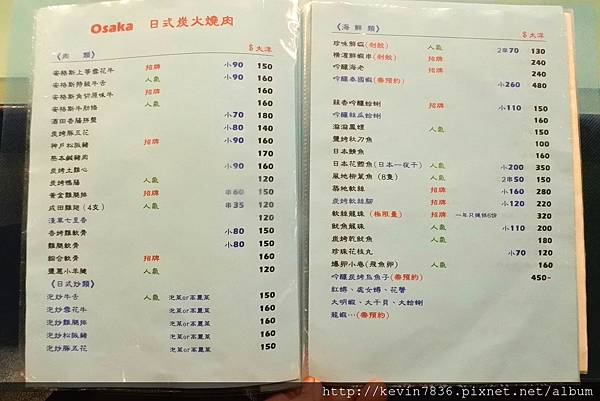 Osaka 日式炭火燒肉
台大洋
《肉 類》
安格斯上等雪花牛 招牌 小90 150
安格斯特級牛舌 人氣 小90 160
安格斯角切原味牛 招牌 160
安格斯牛肋條 人氣 160
酒田香腸拼盤 小70 180
炭烤豚五花 小80 140
神戶松阪豬 招牌 160
熊本鹹豬肉 170
炭烤土雞心 小90 160
炭烤鴨腸 人氣 120
黃金雞腿排 招牌 串60 150
成田雞翅(4支) 人氣 串35 120
淺草七里香 120
香烤雞軟骨 小80 150
雞腿軟骨 小80 150
綜合軟骨 招牌 160
鹽蔥小羊腱 人氣 120
《日式炒類》
泡炒牛舌 人氣 泡菜or高麗菜 150
泡炒雪花牛 泡菜or高麗菜 160
泡炒雞腿排 泡菜or高麗菜 160
泡炒松阪豬 泡菜or高麗菜 160
泡炒豚五花 泡菜or高麗菜 150
《海鮮類》
台大洋
珍味鮮蝦(剝殼) 人氣 2串70 130
橫濱鮮蝦串(剝殼) 招牌 240
吟釀海老 招牌 240
吟釀泰國蝦(需預約) 小260 480
蒜香吟釀蛤蜊 招牌 小110 150
吟釀絲瓜蛤蜊 160
滋滋鳳螺 人氣 150
鹽烤秋刀魚 100
日本鯖魚 160
日本花鯽魚(日本一夜干) 人氣 小200 350
風地柳葉魚(8隻) 人氣 2串50 150
築地軟絲 招牌 小160 280
炭烤軟絲腳 招牌 小120 220
軟絲龍珠(極限量) 招牌 一年只攤條6份 320
魷魚龍珠 人氣 小110 200
炭烤乾魷魚 人氣 180
珍珠花枝丸 小70 120
爆卵小卷(飛魚卵) 人氣 160
吟釀炭烤烏魚子(需預約) 450~
紅蟳、處女蟳、花蟹
大明蝦、大干貝、大蛤蜊
龍蝦…(需預約)
http://kevin7836.pixnet.net/album